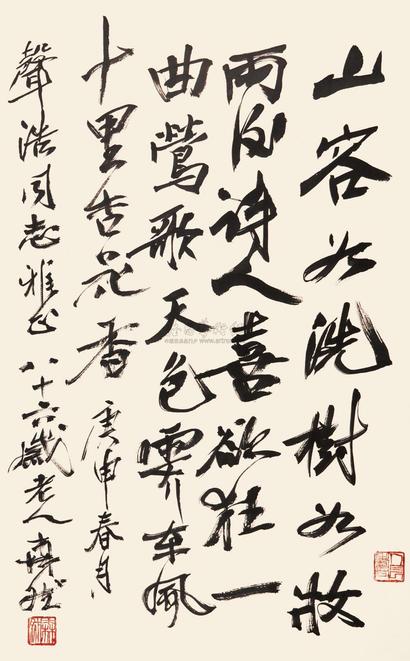 山容如洗樹如妝
雨後詩人喜欲狂一
曲鶯歌天色霽車風
十里杏花香 庚申春月
聲浩同志雅正 八十六歲老人